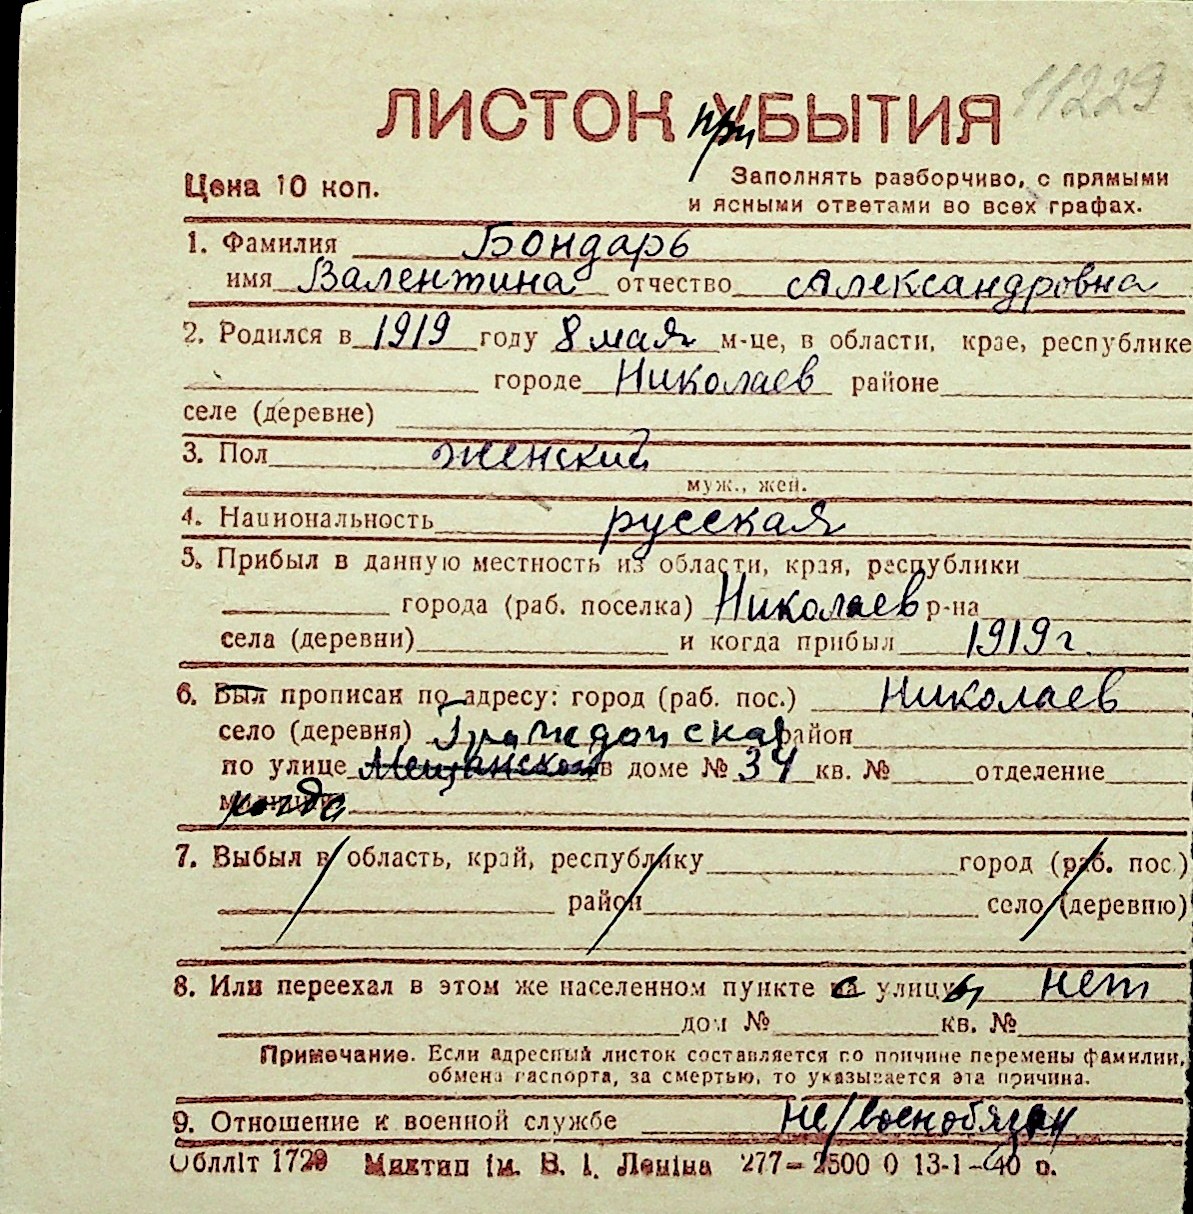 11229
ЛИСТОК при УБЫТИЯ
Цена 10 коп.
Заполнять разборчиво, с прямыми
и ясными ответами во всех графах.
1. Фамилия Бондарь
имя Валентина отчество Александровна
2. Родился в 1919 году 8 мая м-це, в области, крае, республике
городе Николаев районе
селе (деревне)
3. Пол женский
муж., жен.
4. Национальность русская
5. Прибыл в данную местность из области, края, республики
города (раб. поселка) Николаев р-на
села (деревни) и когда прибыл 1919 г.
6. Был прописан по адресу: город (раб. пос.) Николаев
село (деревня) Гражданская район
по улице Мещанской в доме № 34 кв. № отделение
7. Выбыл в область, край, республику город (раб. пос.)
район село (деревню)
8. Или переехал в этом же населенном пункте с улицы нет
дом № кв. №
Примечание. Если адресный листок составляется по причине перемены фамилии,
обмена паспорта, за смертью, то указывается эта причина.
9. Отношение к военной службе не/военобязан
Облліт 1729 Миктип ім. В. І. Леніна 277—2500 0 13-1—40 р.